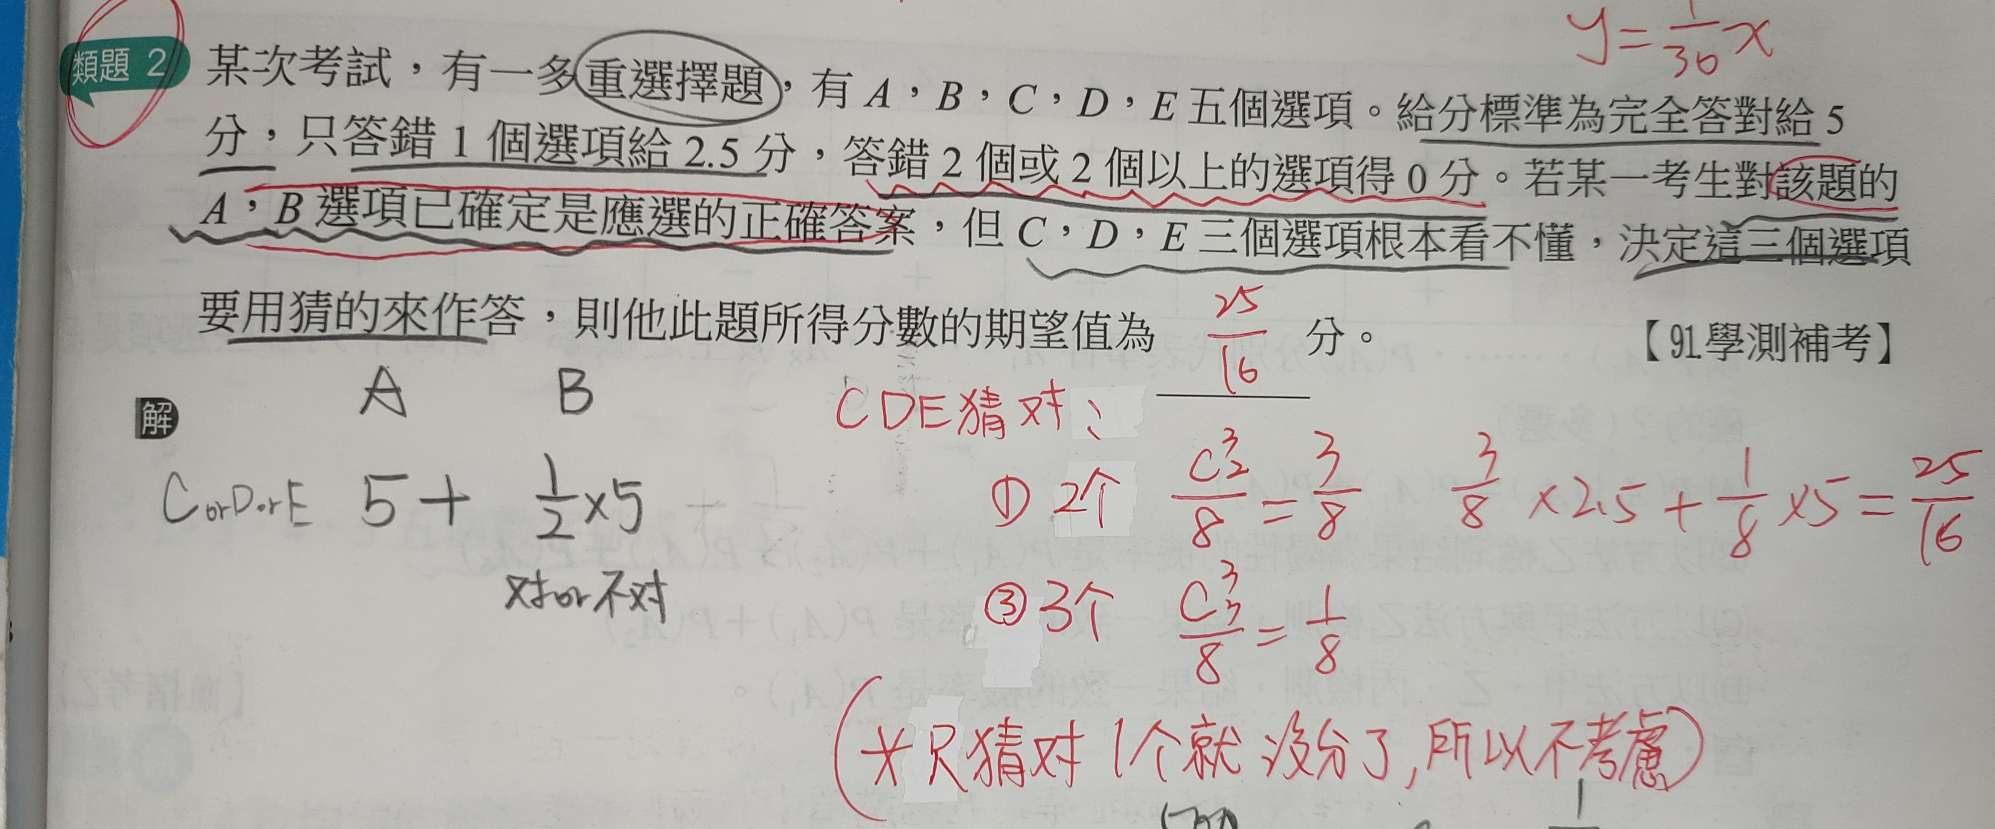 y=1/36 x
類題 2 某次考試，有一多重選擇題，有 A，B，C，D，E 五個選項。給分標準為完全答對給 5
分，只答錯 1 個選項給 2.5 分，答錯 2 個或 2 個以上的選項得 0 分。若某一考生對該題的
A，B 選項已確定是應選的正確答案，但 C，D，E 三個選項根本看不懂，決定這三個選項
要用猜的來作答，則他此題所得分數的期望值為 25/16 分。 【91學測補考】
解 A B
CDE猜对：
CorDorE 5+ 1/2×5
对or不对
① 2个 C³₂/8=3/8 3/8×2.5+1/8×5=25/16
③ 3个 C³₃/8=1/8
(*只猜对1个就没分了,所以不考慮)